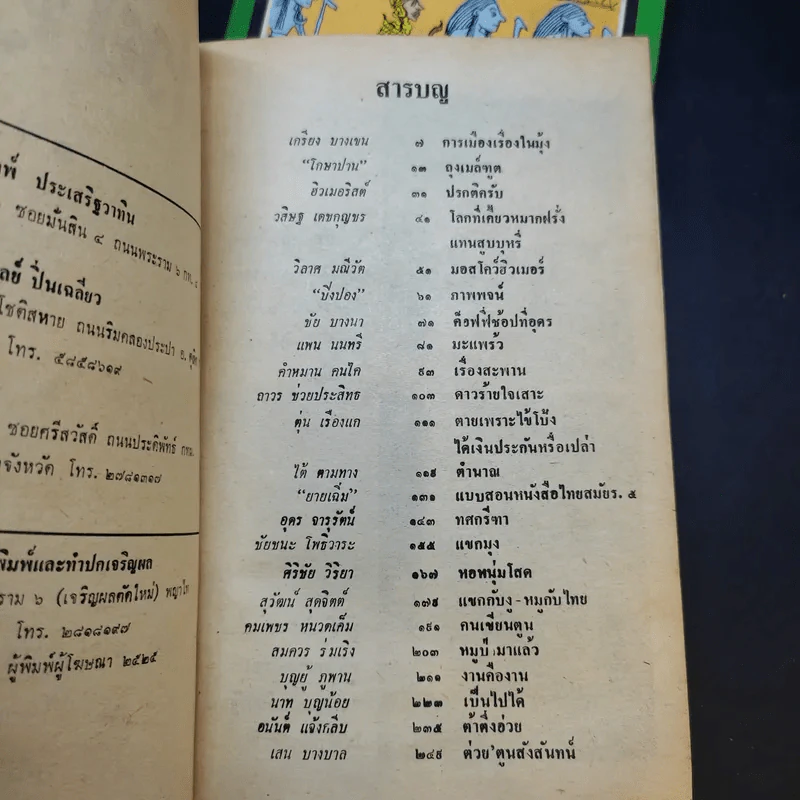 พ์ ประเสริฐวาทิน
ซอยมั่นสิน ๔ ถนนพระราม ๖ กท. ๕
ลย์ ปิ่นเฉลียว
โชติสหาย ถนนริมคลองประปา อ. ดุสิต
โทร. ๕๘๕๘๖๑๙
ซอยศรีสวัสดิ์ ถนนประดิพัทธ์ กทม.
จังหวัด โทร. ๒๗๘๑๓๑๗
พิมพ์และทำปกเจริญผล
ราม ๖ (เจริญผลตัดใหม่) พญาไท
โทร. ๒๘๑๘๑๙๗
ผู้พิมพ์ผู้โฆษณา ๒๕๒๕
สารบญ
เกรียง บางเขน ๗ การเมืองเรื่องในมุ้ง
“โกษาปาน” ๑๓ ถุงเมล์ทูต
ฮิวเมอริสต์ ๓๑ ปรกติครับ
วสิษฐ เดชกุญชร ๔๑ โลกที่เคี้ยวหมากฝรั่ง
แทนสูบบุหรี่
วิลาศ มณีวัต ๕๑ มอสโคว์ฮิวเมอร์
“บิ๋งปอง” ๖๑ ภาพพจน์
ชัย บางนา ๗๑ ค็อฟฟี่ช้อปที่อุดร
แพน นนทรี ๘๑ มะแพร้ว
คำหมาน คนไค ๙๓ เรื่องสะพาน
ถาวร ช่วยประสิทธิ์ ๑๐๓ ดาวร้ายใจเสาะ
ตุ่น เรืองแก ๑๑๑ ตายเพราะไข้โป้ง
ได้เงินประกันหรือเปล่า
ไต้ ตามทาง ๑๑๙ ตำนาณ
“ยายเฉิ่ม” ๑๓๑ แบบสอนหนังสือไทยสมัยร. ๕
อุดร จารุรัตน์ ๑๔๓ ทศกรีฑา
ชัยชนะ โพธิวาระ ๑๕๕ แขกมุง
ศิริชัย วิริยา ๑๖๗ หอหนุ่มโสด
สุวัฒน์ สุดจิตต์ ๑๗๙ แขกกับงู - หมูกับไทย
คมเพชร หนวดเค็ม ๑๙๑ คนเขียนตูน
สมควร ร่มเริง ๒๐๓ หมูป่ามาแล้ว
บุญยู้ ภูพาน ๒๑๑ งานคืองาน
นาท บุญน้อย ๒๒๓ เป็นไปได้
อนันต์ แจ้งกลีบ ๒๓๕ ต้าตึ่งฮ่วย
เสน บางบาล ๒๔๙ ต่วย'ตูนสังสันทน์